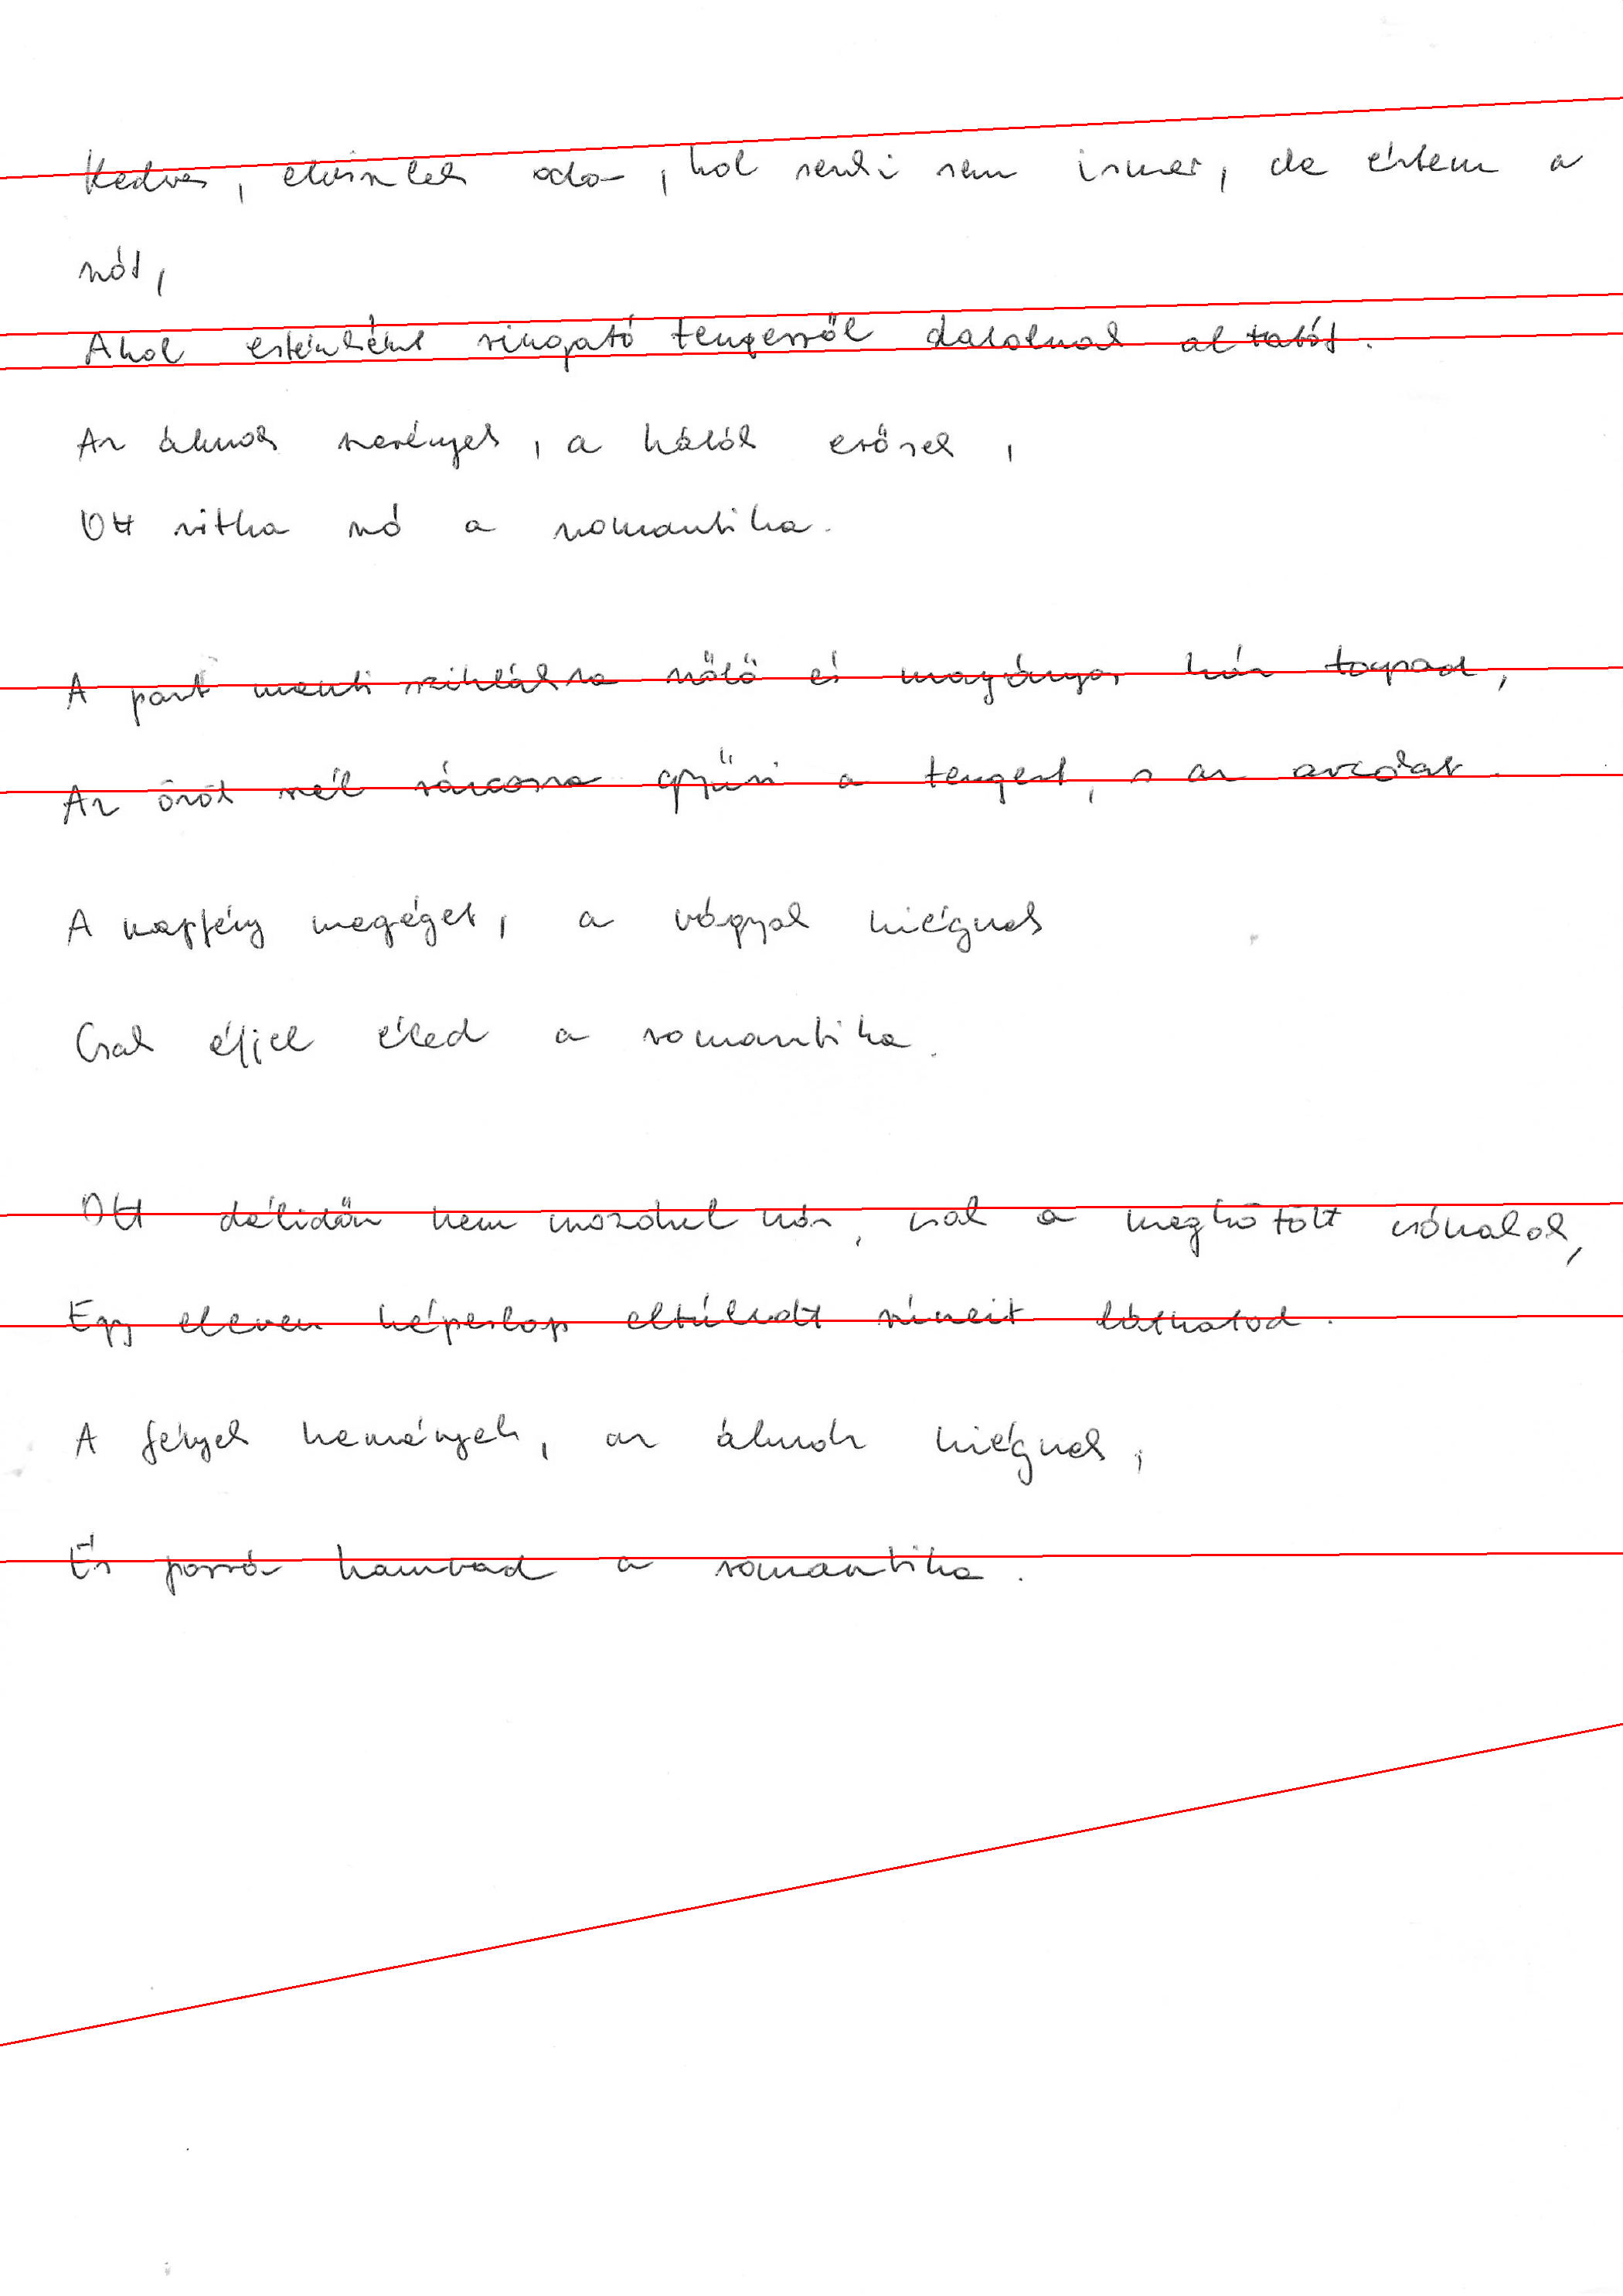 Kedves, elviszlek oda, hol senki sem ismer, de értem a
szót,
Ahol esténként ringató tengerről dalolnak altatót.
Az álmok szerények, a hálók erősek,
Ott ritka szó a romantika.
A part menti sziklákra szőlő és magányos ház tapad,
Az örök szél ráncosra gyűri a tengert, s az arcokat.
A napfény megéget, a vágyak kiégnek
Csak éjjel éled a romantika.
Ott délidőn nem mozdul más, csak a megkötött csónakok,
Egy eleven képeslap eltúlzott színeit láthatod.
A fények kemények, az álmok kiégnek,
És porrá hamvad a romantika.